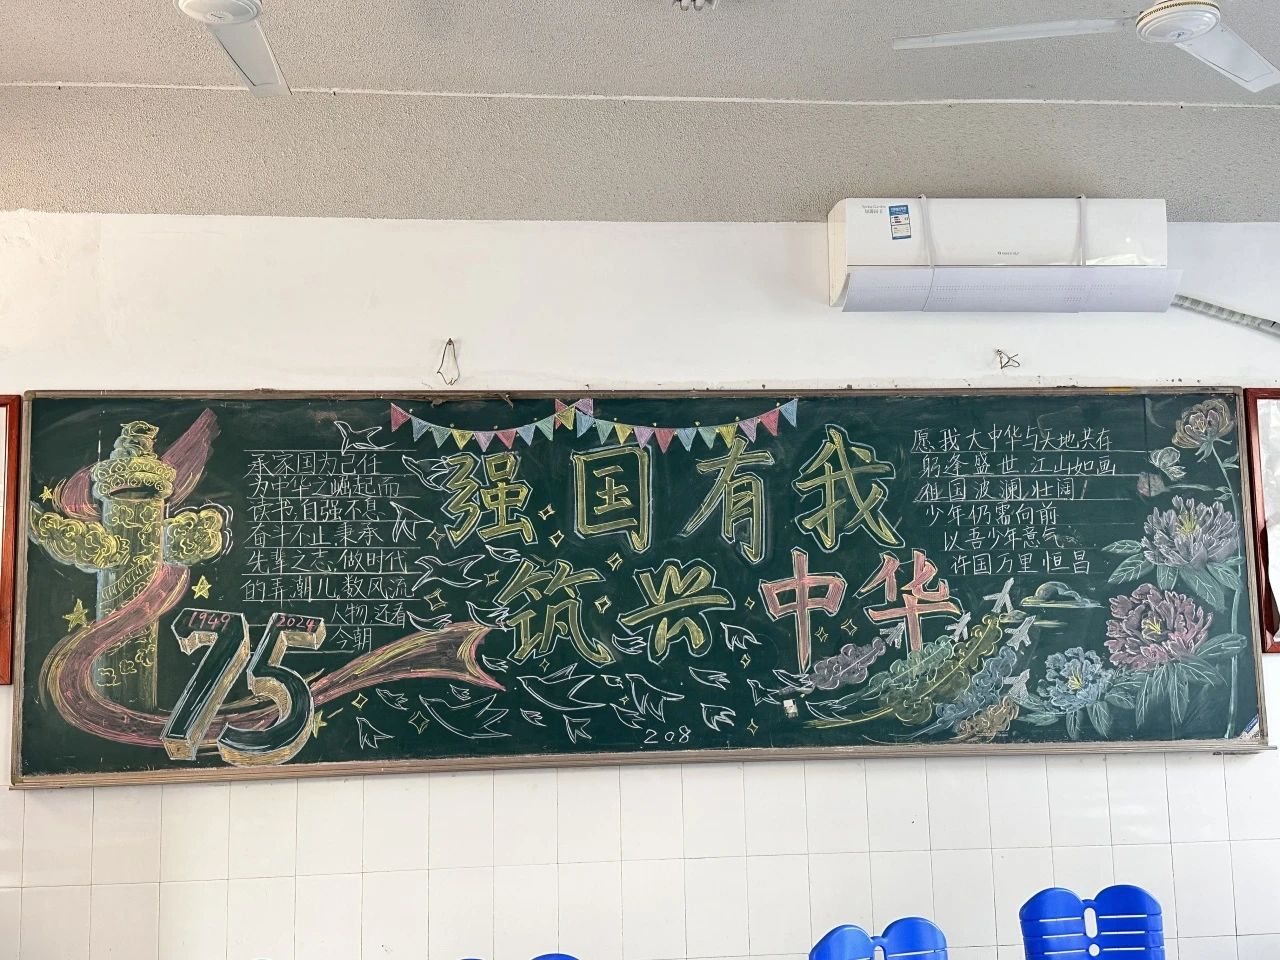 强国有我
筑兴中华
承家国为己任
为中华之崛起而
读书,自强不息,
奋斗不止,秉承
先辈之志,做时代
的弄潮儿,数风流
人物,还看
今朝
1949
2024
75
愿我大中华与天地共存
躬逢盛世,江山如画
祖国波澜壮阔!
少年仍需向前
以吾少年意气
许国万里恒昌
208